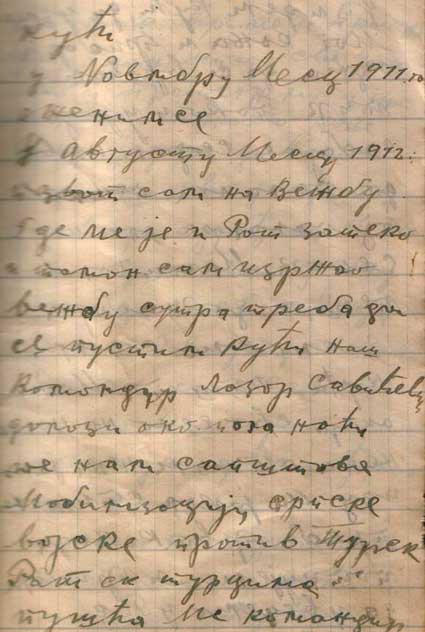 кући
у Новембру Месц 1911. го
женимсе
у Августу Месец 1912.
позват сам на Вежбу
где ме је и Рат затеко
а томон сам издржао
вежбу сутра треба да
се пустим кући наш
Командир Лазор Савићевић
долази око пола ноћи
те нам саопштова
Мобилизацију српске
војске против Турск
Рат ск турцима
пушћа ме командир